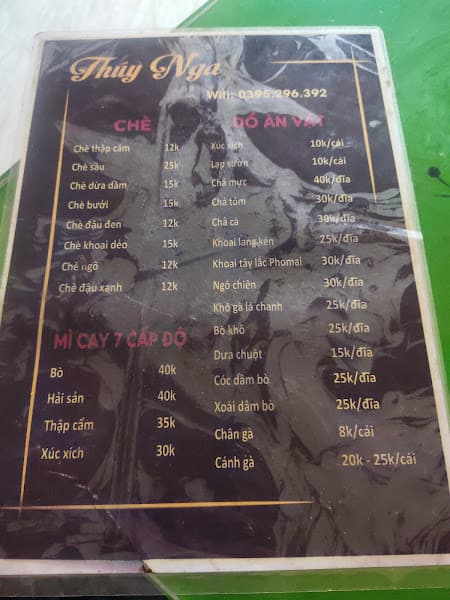 Thúy Nga
Wifi: 0395.296.392
CHÈ
Chè thập cẩm 12k
Chè sầu 25k
Chè dừa dầm 15k
Chè bưởi 15k
Chè đậu đen 12k
Chè khoai dẻo 15k
Chè ngô 12k
Chè đậu xanh 12k
MÌ CAY 7 CẤP ĐỘ
Bò 40k
Hải sản 40k
Thập cẩm 35k
Xúc xích 30k
ĐỒ ĂN VẶT
Xúc xích 10k/cái
Lạp sườn 10k/cái
Chả mực 40k/đĩa
Chả tôm 30k/đĩa
Chả cá 30k/đĩa
Khoai lang kén 25k/đĩa
Khoai tây lắc Phomai 30k/đĩa
Ngô chiên 30k/đĩa
Khô gà lá chanh 25k/đĩa
Bò khô 25k/đĩa
Dưa chuột 15k/đĩa
Cóc dầm bò 25k/đĩa
Xoài dầm bò 25k/đĩa
Chân gà 8k/cái
Cánh gà 20k - 25k/cái